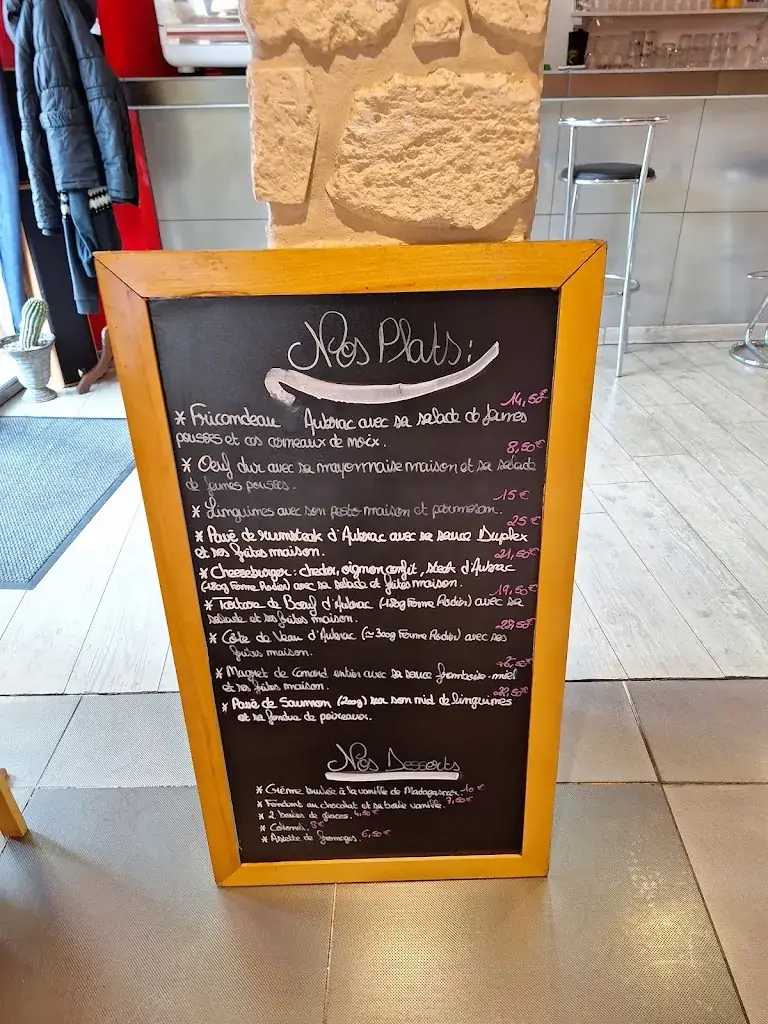 Nos Plats :
14,50€
* Fricandeau Aubrac avec sa salade de jeunes
pousses et cerneaux de noix.
8,50€
* Oeuf dur avec sa mayonnaise maison et sa salade
de jeunes pousses.
15€
* Linguines avec son pesto maison et parmesan.
25€
* Pavé de rumsteak d'Aubrac avec sa sauce Duplex
et ses frites maison.
21,50€
* Cheeseburger : cheddar, oignon confit, steak d'Aubrac
(180g Ferme Rodier) avec sa salade et frites maison.
19,50€
* Tartare de Boeuf d'Aubrac (180g Ferme Rodier) avec sa
salade et ses frites maison.
28,50€
* Côte de Veau d'Aubrac (≃300g Ferme Rodier) avec ses
frites maison.
* Magret de Canard entier avec sa sauce framboise-miel
et ses frites maison.
22,50€
* Pavé de Saumon (200g) sur son nid de linguines
et sa fondue de poireaux.
Nos Desserts
* Crème brulée à la vanille de Madagascar. 10€
* Fondant au chocolat et sa boule vanille. 7,50€
* 2 boules de glaces. 4,50€
* Colonel. 8€
* Assiette de fromages. 6,50€